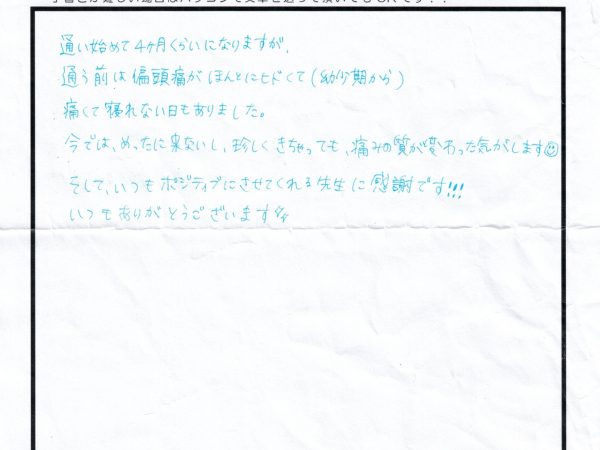 通い始めて4ヶ月くらいになりますが、
通う前は偏頭痛がほんとにヒドくて(幼少期から)
痛くて寝れない日もありました。
今では、めったに来ないし、珍しくきちゃっても、痛みの質が変わった気がします☺
そして、いつもポジティブにさせてくれる先生に感謝です!!!
いつもありがとうございます